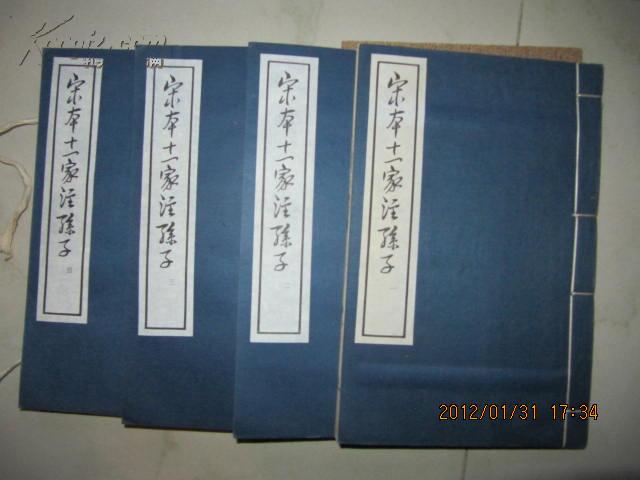 宋本十一家注孫子 一
宋本十一家注孫子 二
宋本十一家注孫子 三
宋本十一家注孫子 四
2012/01/31 17:34